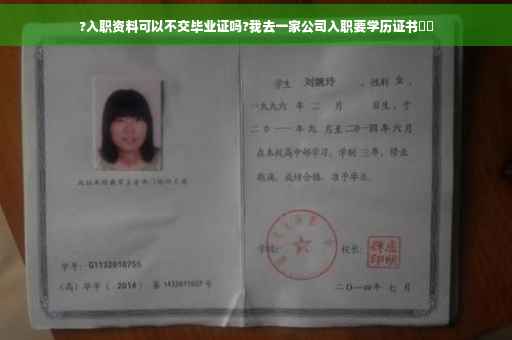 ?入职资料可以不交毕业证吗?我去一家公司入职要学历证书
学生 刘婉玲 ,性别 女 ,
一九九六 年 二 月 日生,于
二〇一一年九 月至二〇一四年六月
在本校高中部学习,学制 三年,修业
期满,成绩合格,准予毕业。
学校: 校长:
学号: G1132010755
(高)毕字( 2014 )第 1432011027 号
二〇一四年 七 月